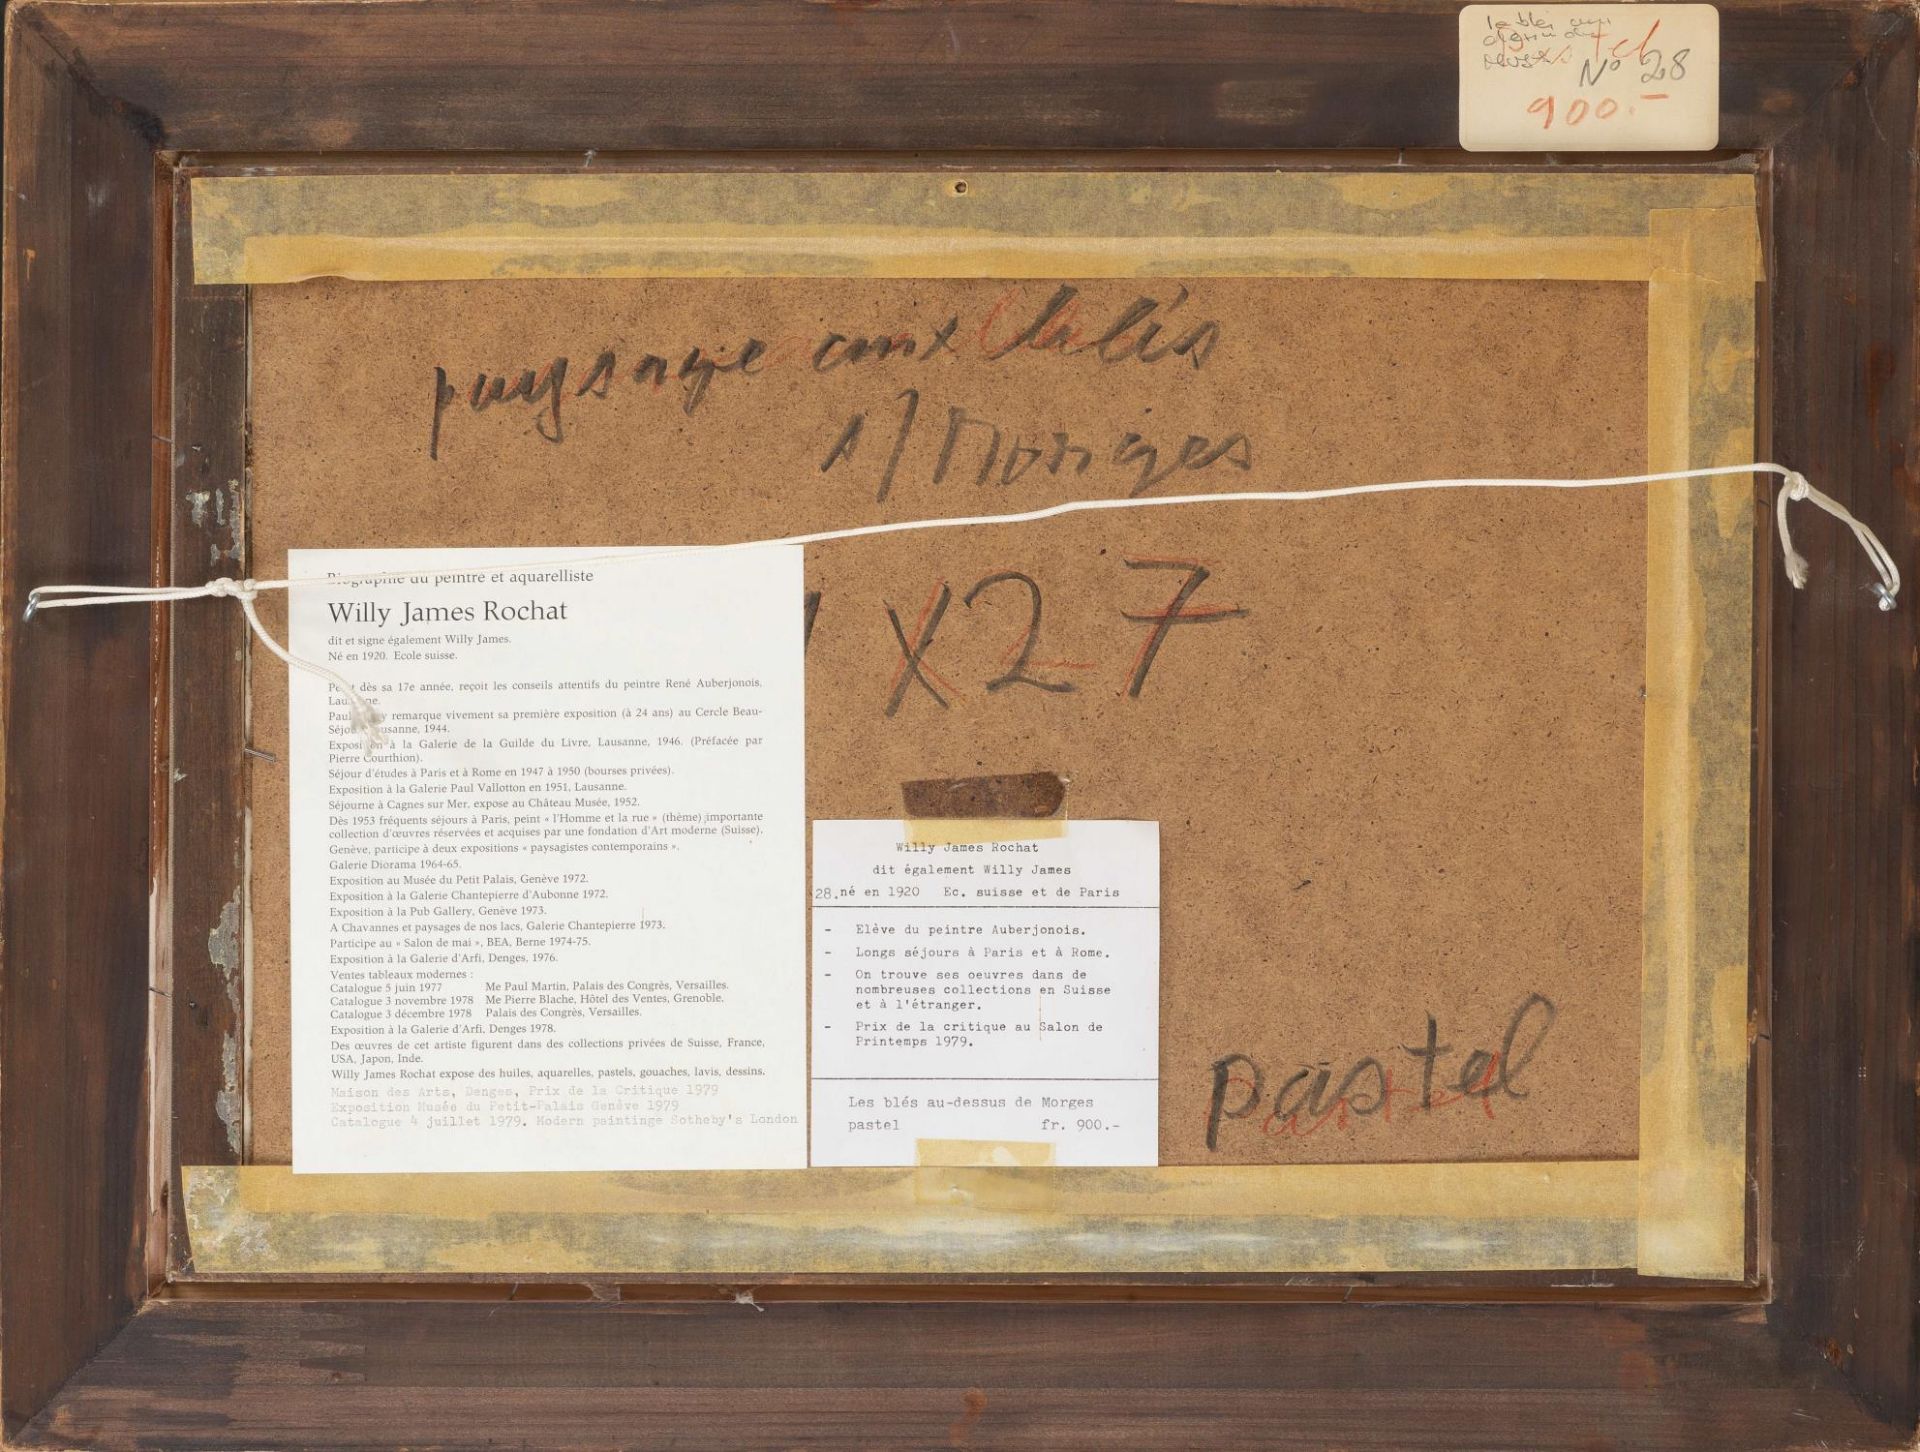 le blés
N° 28
900.-
paysage aux blés
s/ Morges
x 27
Biographie du peintre et aquarelliste
Willy James Rochat
dit et signe également Willy James.
Né en 1920. Ecole suisse.
dès sa 17e année, reçoit les conseils attentifs du peintre René Auberjonois,
Paul remarque vivement sa première exposition (à 24 ans) au Cercle Beau-
Séjour, Lausanne, 1944.
Exposition à la Galerie de la Guilde du Livre, Lausanne, 1946. (Préfacée par
Pierre Courthion).
Séjour d'études à Paris et à Rome en 1947 à 1950 (bourses privées).
Exposition à la Galerie Paul Vallotton en 1951, Lausanne.
Séjourne à Cagnes sur Mer, expose au Château Musée, 1952.
Dès 1953 fréquents séjours à Paris, peint « l'Homme et la rue » (thème) importante
collection d'œuvres réservées et acquises par une fondation d'Art moderne (Suisse).
Genève, participe à deux expositions « paysagistes contemporains ».
Galerie Diorama 1964-65.
Exposition au Musée du Petit Palais, Genève 1972.
Exposition à la Galerie Chantepierre d'Aubonne 1972.
Exposition à la Pub Gallery, Genève 1973.
A Chavannes et paysages de nos lacs, Galerie Chantepierre 1973.
Participe au « Salon de mai », BEA, Berne 1974-75.
Exposition à la Galerie d'Arfi, Denges, 1976.
Ventes tableaux modernes :
Catalogue 5 juin 1977 Me Paul Martin, Palais des Congrès, Versailles.
Catalogue 3 novembre 1978 Me Pierre Blache, Hôtel des Ventes, Grenoble.
Catalogue 3 décembre 1978 Palais des Congrès, Versailles.
Exposition à la Galerie d'Arfi, Denges 1978.
Des œuvres de cet artiste figurent dans des collections privées de Suisse, France,
USA, Japon, Inde.
Willy James Rochat expose des huiles, aquarelles, pastels, gouaches, lavis, dessins.
Maison des Arts, Denges, Prix de la Critique 1979
Exposition Musée du Petit-Palais Genève 1979
Catalogue 4 juillet 1979. Modern paintinge Sotheby's London
Willy James Rochat
dit également Willy James
28. né en 1920 Ec. suisse et de Paris
- Elève du peintre Auberjonois.
- Longs séjours à Paris et à Rome.
- On trouve ses oeuvres dans de
nombreuses collections en Suisse
et à l'étranger.
- Prix de la critique au Salon de
Printemps 1979.
Les blés au-dessus de Morges
pastel fr. 900.-
pastel